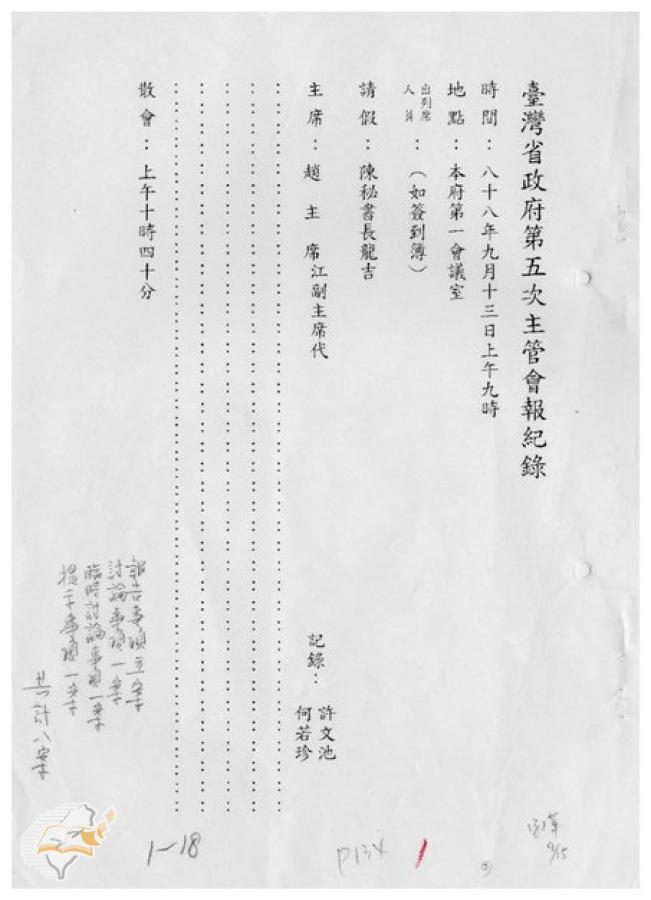 臺灣省政府第五次主管會報紀錄
時間：八十八年九月十三日上午九時
地點：本府第一會議室
出列席人員：（如簽到簿）
請假：陳秘書長龍吉
主席：趙主席江副主席代
記錄：許文池
何若珍
散會：上午十時四十分
報告事項五案
討論事項一案
臨時討論事項一案
提示事項一案
共計八案
1-18
P134
1
9/15